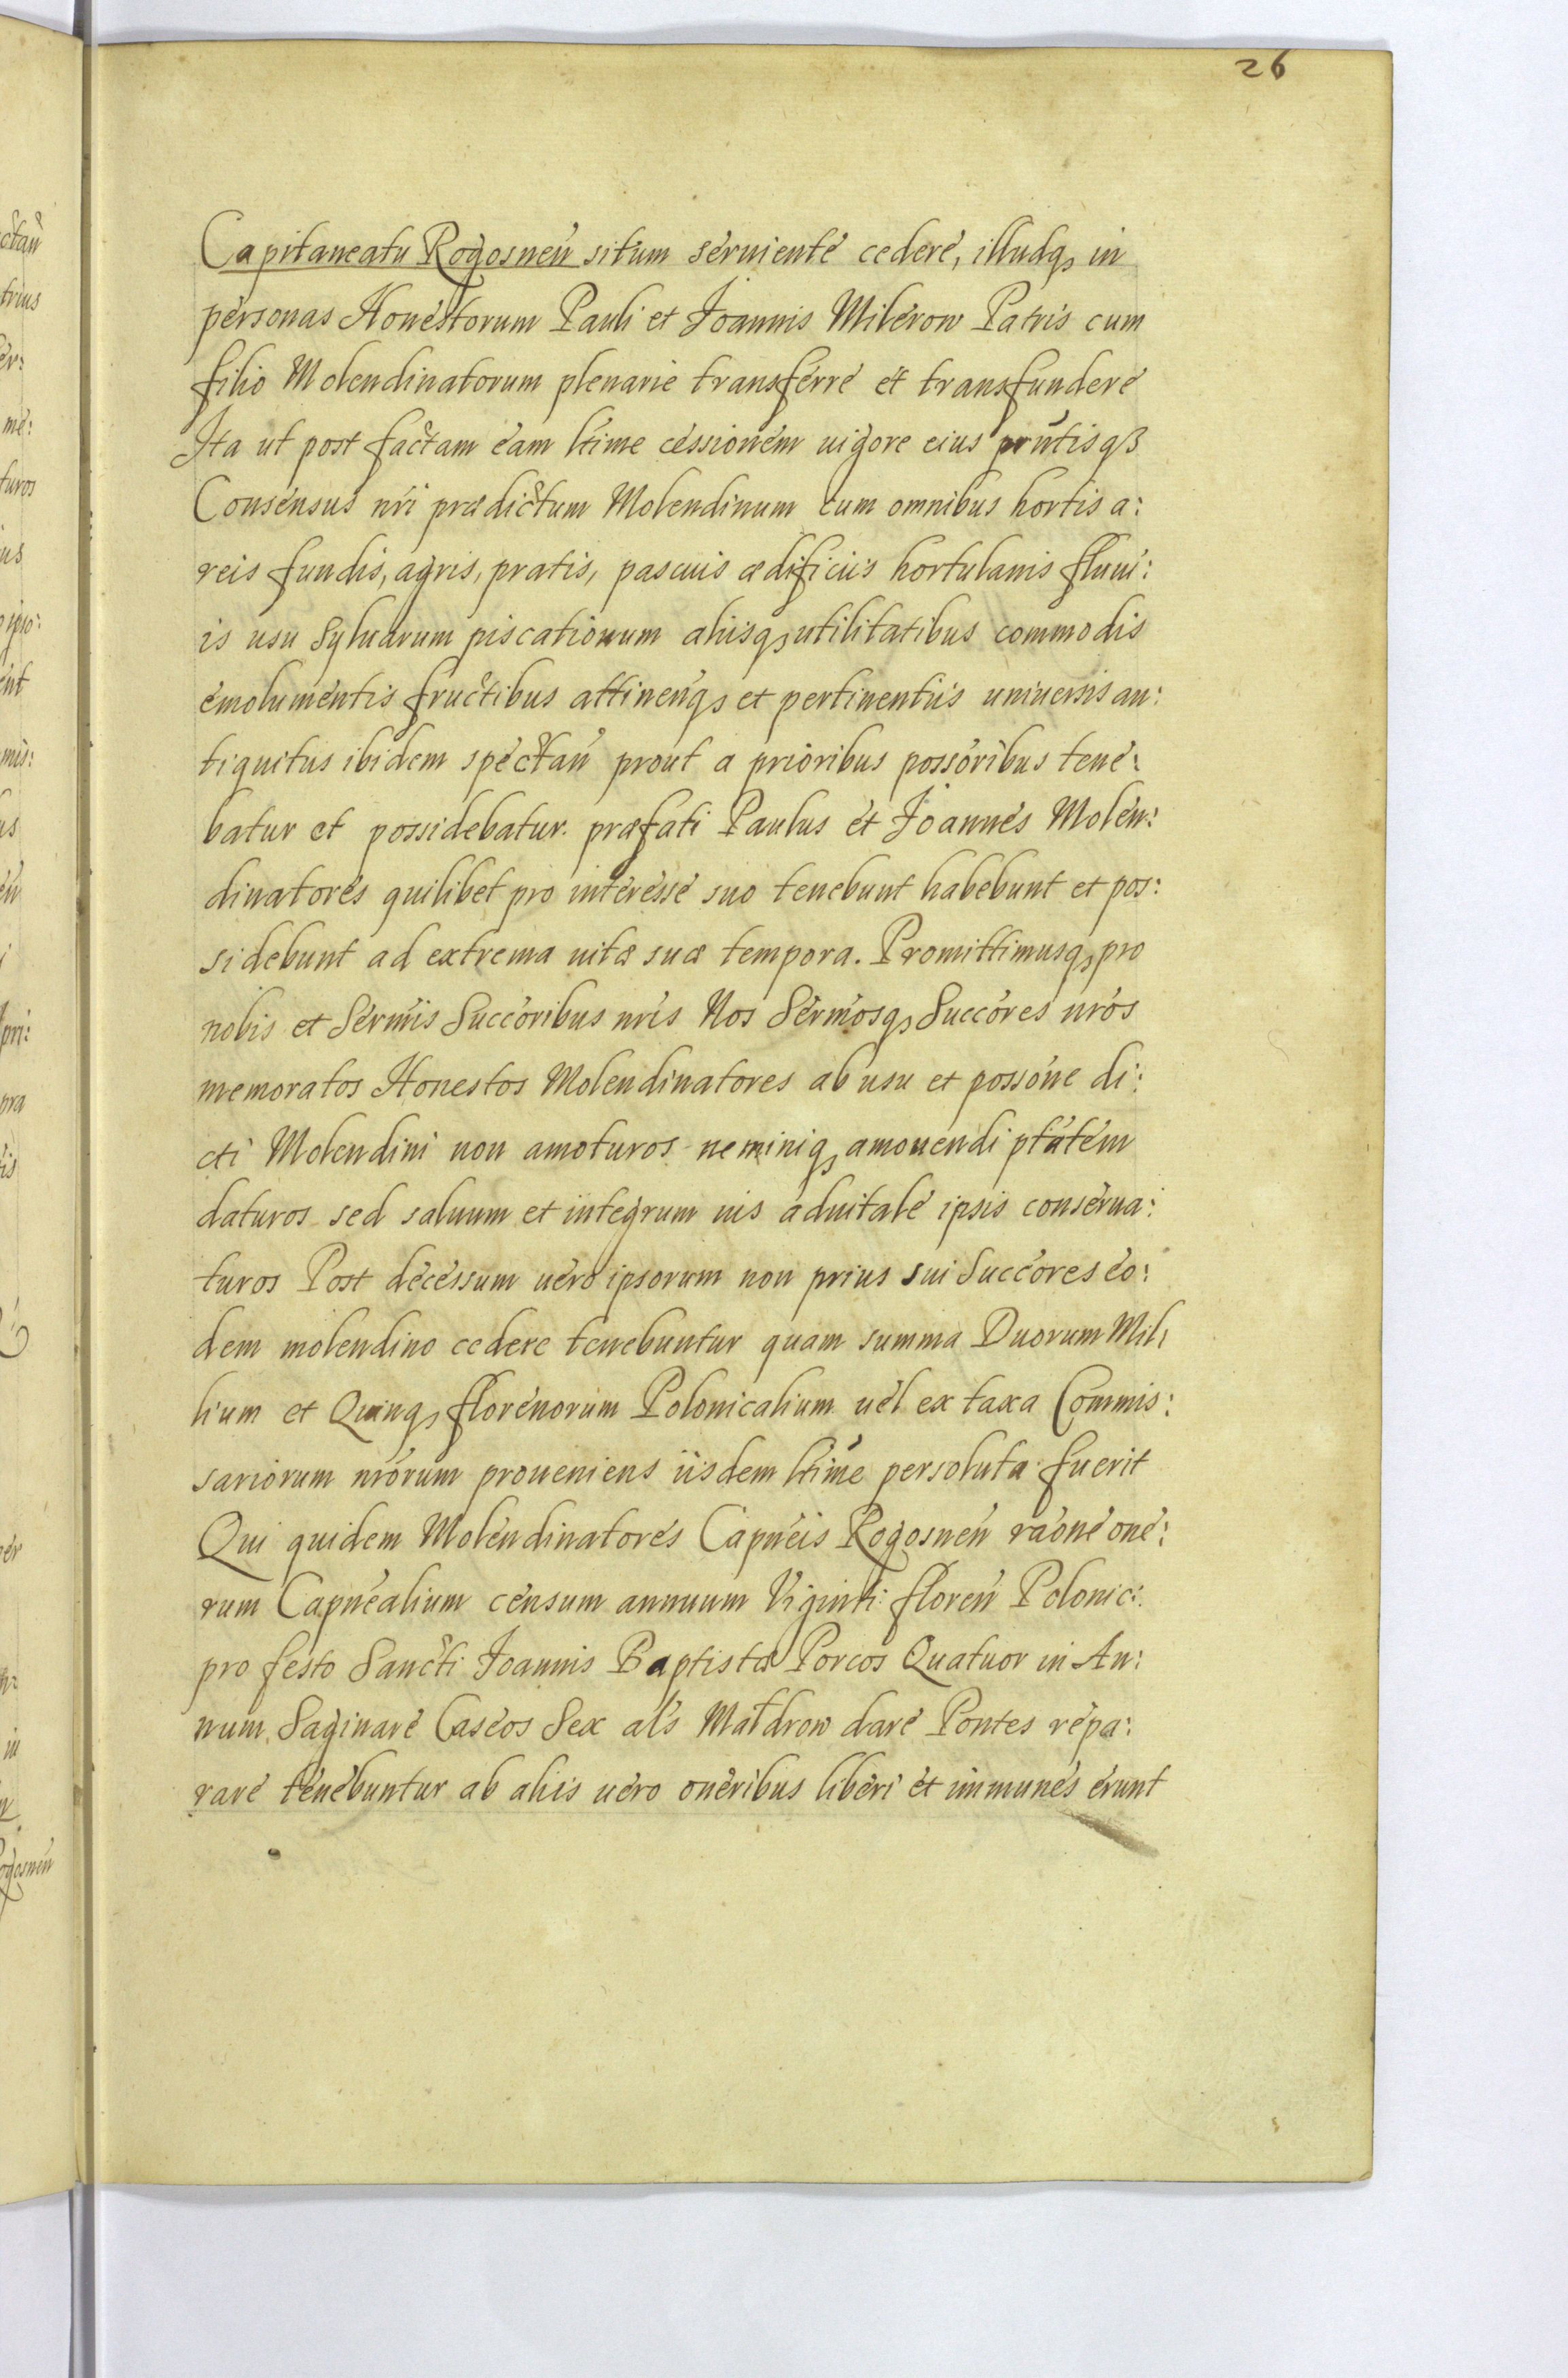 26
Capitaneatu Rogosneń situm seruiente cedere, illudqȝ in
personas Honestorum Pauli et Joannis Milerow Patris cum
filio Molendinatorum plenarie transferre et transfundere
Ita ut post factam eam ltime cessionem uigore eius pŕntisqȝ
Consensus nŕi prædictum Molendinum cum omnibus hortis a:
reis fundis, agris, pratis, pascuis ædificiis hortulanis fluui:
is usu Syluarum piscationum aliisqȝ utilitatibus commodis
emolumentis fructibus attineńqȝ et pertinentiis uniuersis an:
tiquitus ibidem spectań prout a prioribus possóribus tene:
batur et possidebatur. præfati Paulus et Joannes Molen:
dinatores quilibet pro interesse suo tenebunt habebunt et pos:
sidebunt ad extrema uitæ suæ tempora. Promittimusqȝ pro
nobis et Sermis Succóribus nŕis Nos Sermosqȝ Succóres nŕos
memoratos Honestos Molendinatores ab usu et possóne di:
cti Molendini non amoturos neminiqȝ amouendi ptátem
daturos sed saluum et integrum ius aduitale ipsis conserua:
turos Post decessum uero ipsorum non prius sui Succóres eo:
dem molendino cedere tenebuntur quam summa Duorum Mil:
lium et Quinqȝ florenorum Polonicalium uel ex taxa Commis:
sariorum nŕorum proueniens iisdem ltime persoluta fuerit
Qui quidem Molendinatores Capneis Rogosneń raóne one:
rum Capnealium censum annuum Viginti floreń Polonic:
pro festo Sancti Joannis Baptistæ Porcos Quatuor in An:
num Saginare Caseos Sex als Małdrow dare Pontes repa:
rare tenebuntur ab aliis uero oneribus liberi et immunes erunt